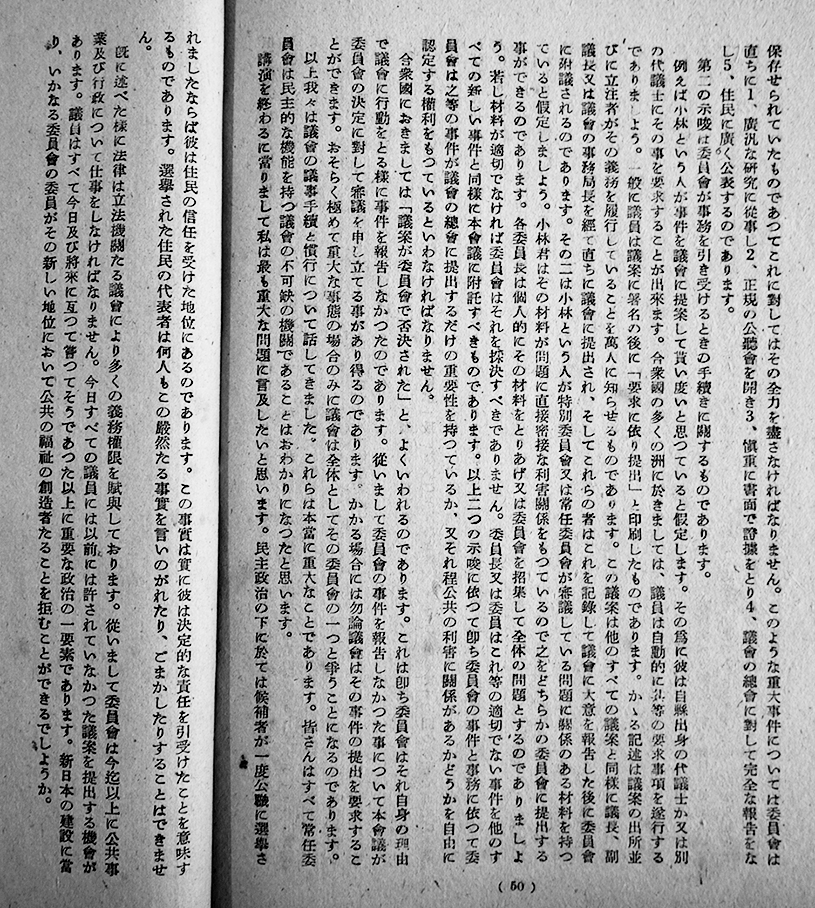 保存せられていたものであつてこれに対してはその全力を盡さなければなりません。このような重大事件については委員會は
直ちに1、廣汎な研究に從事し2、正規の公聽會を開き3、愼重に書面で證據をとり4、議會の總會に對して完全な報告をな
し5、住民に廣く公表するのであります。
第二の示唆は委員會が事務を引き受けるときの手續きに關するものであります。
例えば小林という人が事件を議會に提案して貰い度いと思つていると假定します。その爲に彼は自縣出身の代議士か又は別
の代議士にその事を要求することが出來ます。合衆國の多くの洲に於きましては、議員は自動的に此等の要求事項を遂行する
でありましよう。一般に議員は議案に署名の後に「要求に依り提出」と印刷したものであります。かゝる記述は議案の出所並
びに立法者がその義務を履行していることを萬人に知らせるものであります。この議案は他のすべての議案と同樣に議長、副
議長又は議會の事務局長を經て直ちに議會に提出され、そしてこれらの者はこれを記錄して議會に大意を報告した後に委員會
に附議されるのであります。その二は小林という人が特別委員會又は常任委員會が審議している問題に關係のある材料を持つ
ていると假定しましよう。小林君はその材料が問題に直接密接な利害關係をもつているので之をどちらかの委員會に提出する
事ができるのであります。各委員長は個人的にその材料をとりあげ又は委員會を招集して全体の問題とするのでありましよ
う。若し材料が適切でなければ委員會はそれを採決すべきでありません。委員長又は委員はこれ等の適切でない事件を他のす
べての新しい事件と同樣に本會議に附託すべきものであります。以上二つの示唆に依つて卽ち委員會の事件と事務に依つて委
員會は之等の事件が議會の總會に提出するだけの重要性を持つているか、又それ程公共の利害に關係があるかどうかを自由に
認定する權利をもつているといわなければなりません。
合衆國におきましては「議案が委員會で否決された」と、よくいわれるのであります。これは卽ち委員會はそれ自身の理由
で議會に行動をとる樣に事件を報告しなかつたのであります。從いまして委員會の事件を報告しなかつた事について本會議が
委員會の決定に對して審議を申し立てる事があり得るのであります。かかる場合には勿論議會はその事件の提出を要求するこ
とができます。おそらく極めて重大な事態の場合のみに議會は全体としてその委員會の一つと爭うことになるのであります。
以上我々は議會の議事手續と慣行について話してきました。これらは本當に重大なことであります。皆さんはすべて常任委
員會は民主的な機能を持つ議會の不可缺の機關であることはおわかりになつたと思います。
講演を終わるに當りまして私は最も重大な問題に言及したいと思います。民主政治の下に於ては候補者が一度公職に選擧さ
(50)
れましたならば彼は住民の信任を受けた地位にあるのであります。この事實は實に彼は決定的な責任を引受けたことを意味す
るものであります。選擧された住民の代表者は何人もこの嚴然たる事實を言いのがれたり、ごまかしたりすることはできませ
ん。
旣に述べた樣に法律は立法機關たる議會により多くの義務權限を賦與しております。從いまして委員會は今迄以上に公共事
業及び行政について仕事をしなければなりません。今日すべての議員には以前には許されていなかつた議案を提出する機會が
あります。議員はすべて今日及び將來に互つて嘗つてそうであつた以上に重要な政治の一要素であります。新日本の建設に當
り、いかなる委員會の委員がその新しい地位において公共の福祉の創造者たることを拒むことができるでしようか。